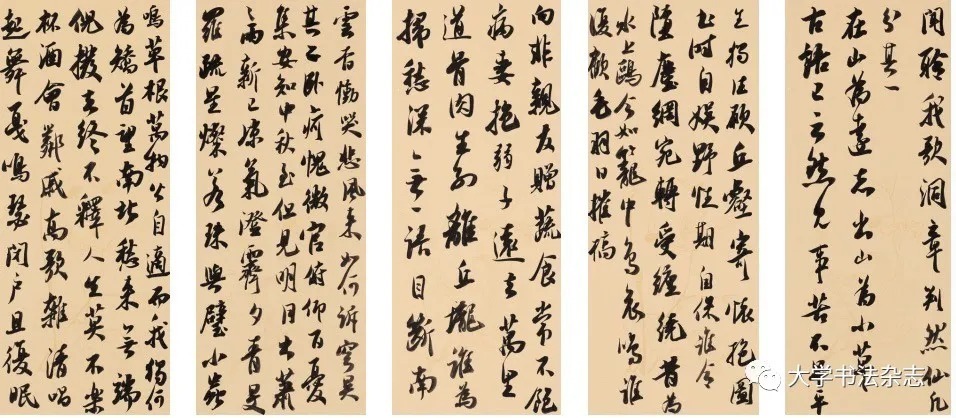 聞聆我歌洞章判然仙凡
分其一
在山為遠志出山為小草
古語已云然見事苦不早平
生獨往願丘壑寄懷抱圖
書時自娛野性期自保誰令
墮塵網宛轉受纏繞昔為
水上鷗今如籠中鳥哀鳴誰
復顧毛羽日摧槁
向非親友贈蔬食常不飽
病妻抱弱子遠去萬里
道骨肉生別離丘壠誰為
掃愁深無一語目斷南
雲杳慟哭悲風來如何訴穹昊
其二卧病愧微官俯仰百憂
集安知中秋至但見明月出蕭
齋新已凉氣澄霽夕青旻
羅疏星燦若珠與璧小蟲
鳴草根萬物各自適而我獨何
為矯首望南北愁來無端
倪撥去終不釋人生莫不樂
杯酒會鄰戚高歌雜清唱
起舞戛鳴瑟閉户且復眠
大学书法杂志